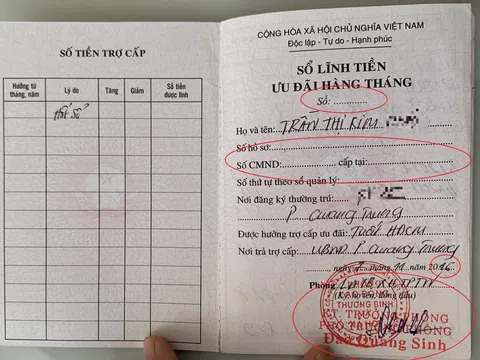 SỐ TIỀN TRỢ CẤP
Hưởng từ tháng, năm
Lý do
Tăng
Giảm
Số tiền được lĩnh
Hết sổ
CỘNG HÒA XÃ HỘI CHỦ NGHĨA VIỆT NAM
Độc lập - Tự do - Hạnh phúc
SỔ LĨNH TIỀN
ƯU ĐÃI HÀNG THÁNG
Số: ............
Họ và tên: TRẦN THỊ KIM
Số hồ sơ:
Số CMND: cấp tại:
Số thứ tự theo sổ quản lý:
Nơi đăng ký thường trú:
P. Quang Trung
Được hưởng trợ cấp ưu đãi: Tuất
Nơi trả trợ cấp: UBND P. Quang Trung
ngày tháng 11 năm 2016
Phòng
(Ký, họ tên, đóng dấu)
THƯƠNG BINH
KT. TRƯỞNG PHÒNG
PHÓ TRƯỞNG PHÒNG
Đào Quang Sinh